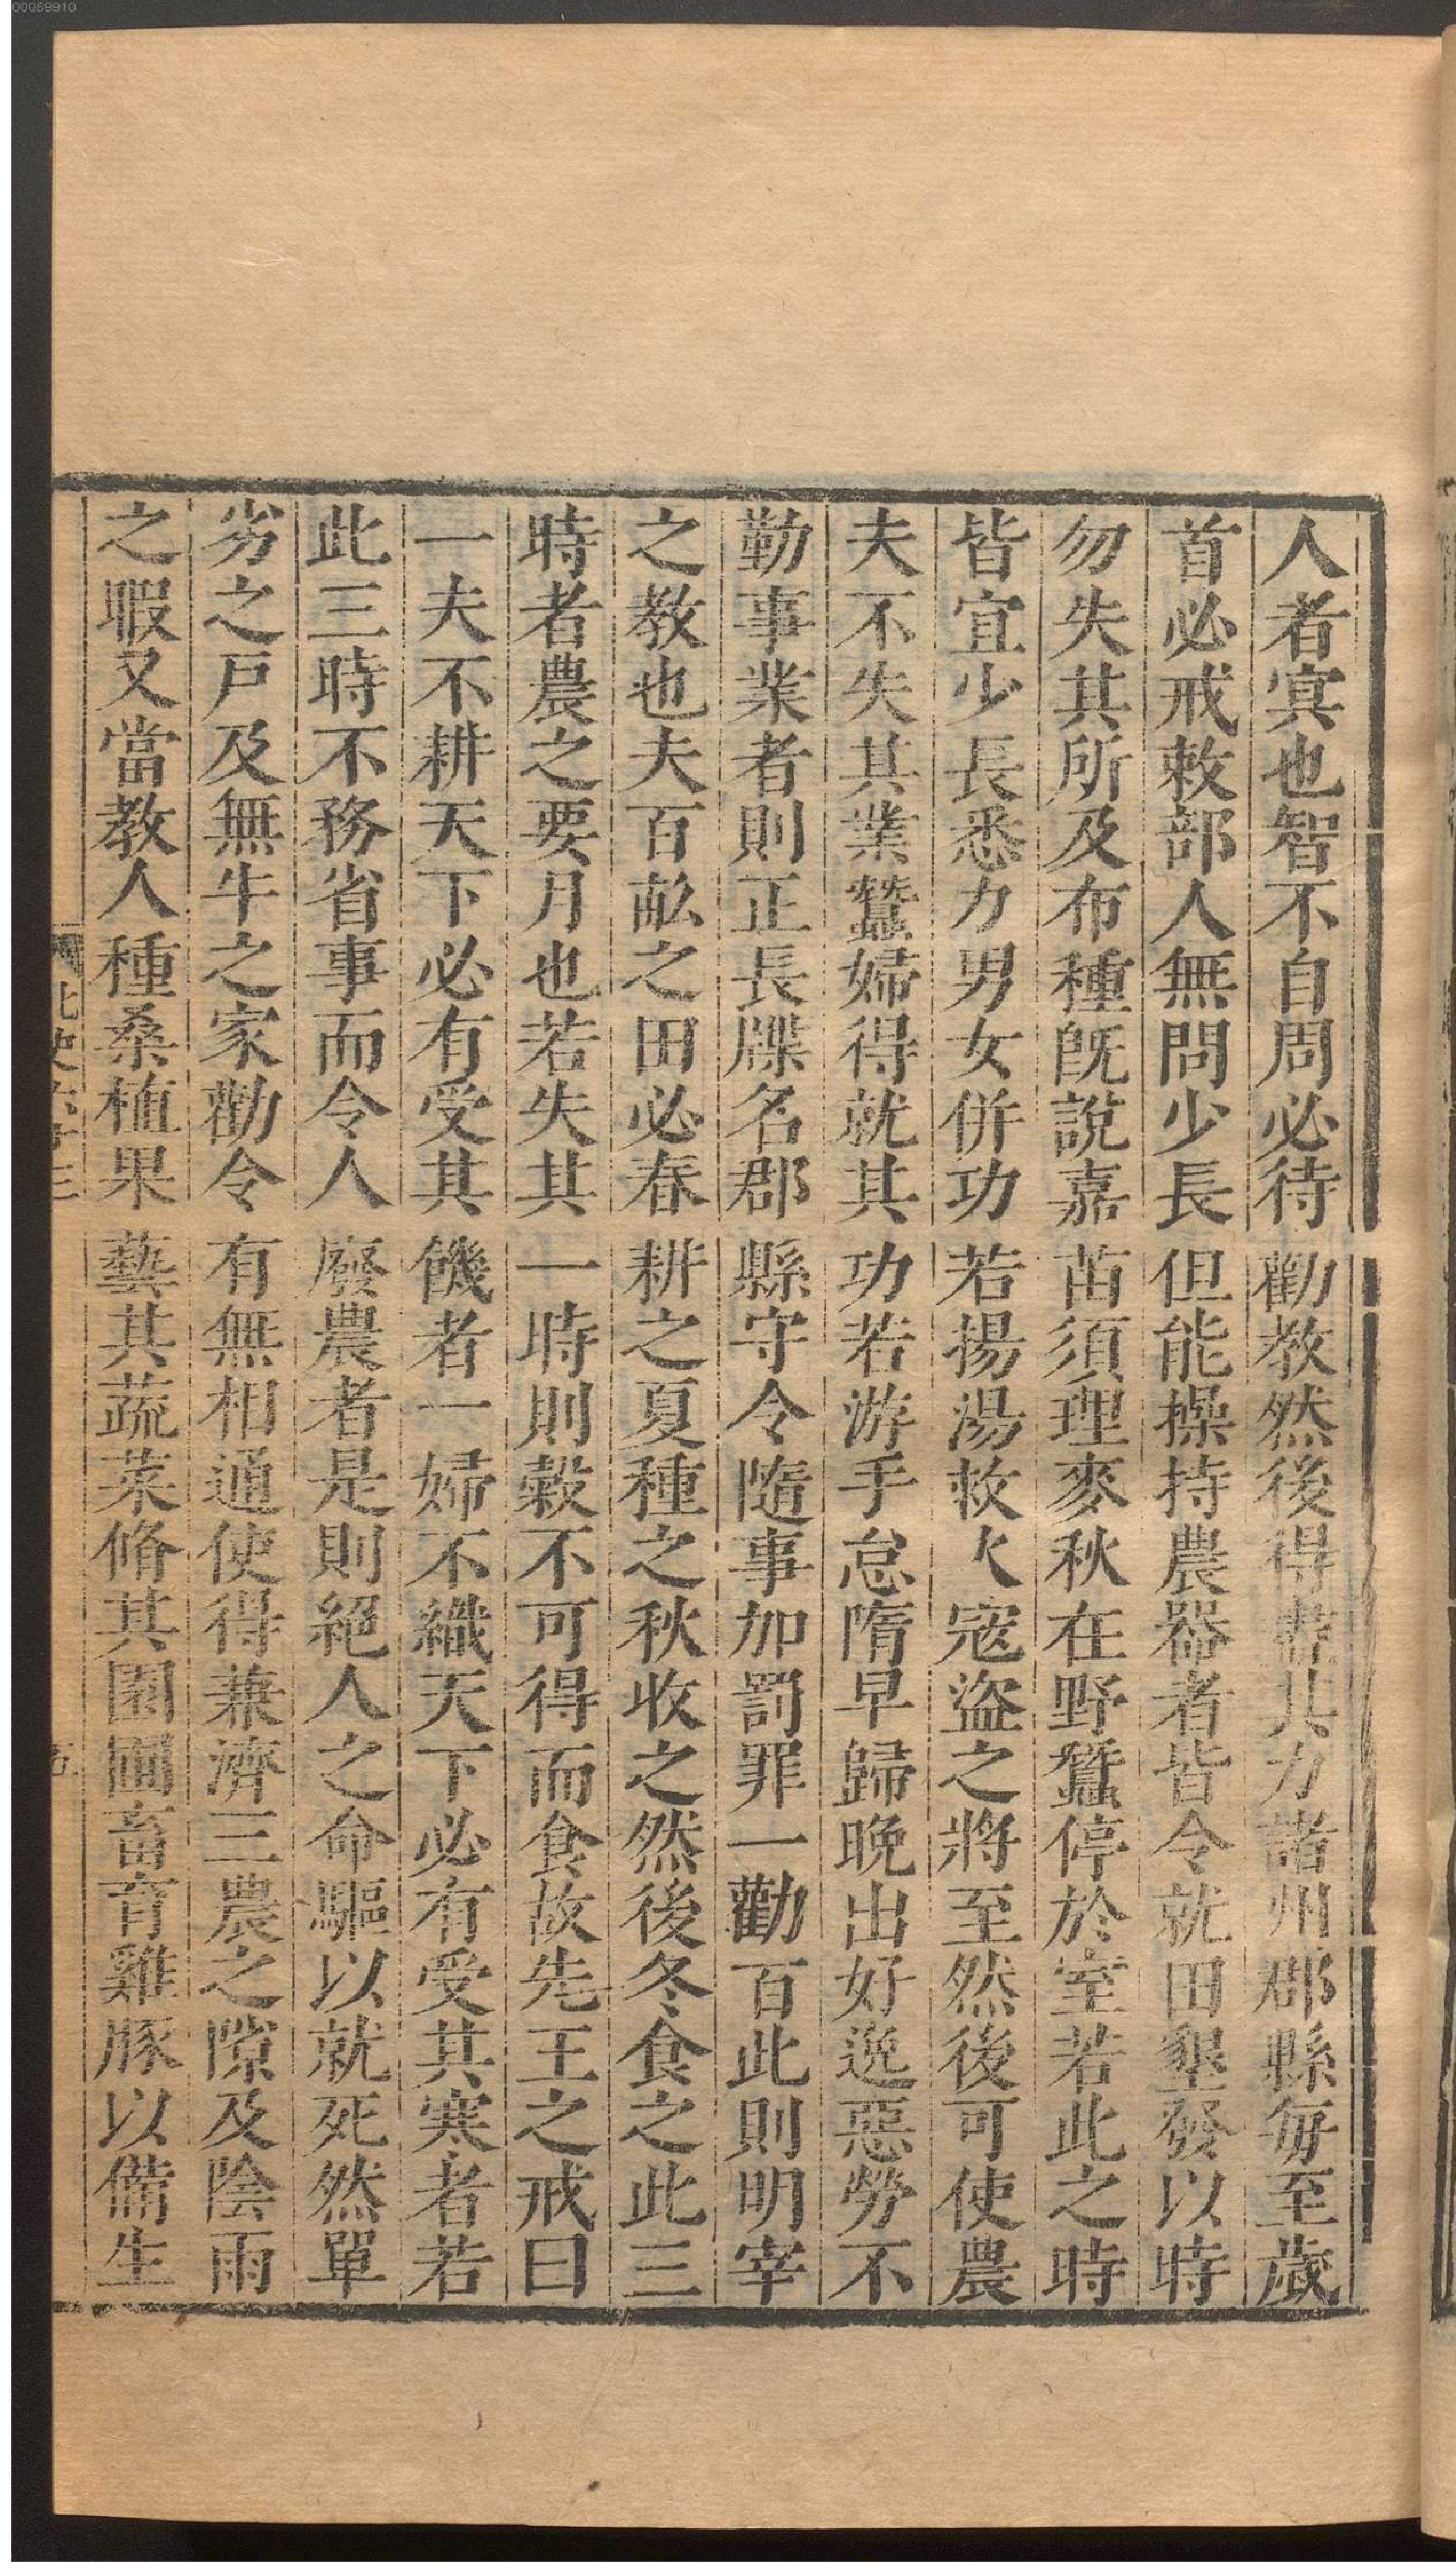 00059910
人者㝠也智不自周必待勸教然後得盡其力諸州郡縣每至歲
首必戒敕部人無問少長但能操持農器者皆令就田墾發以時
勿失其所及布種旣說嘉苗須理麥秋在野蠶停於室若此之時
皆宜少長悉力男女併功若揚湯救火寇盜之將至然後可使農
夫不失其業蠶婦得就其功若游手怠隋早歸晚出好逸惡勞不
勤事業者則正長牒名郡縣守令隨事加罰罪一勸百此則明宰
之教也夫百畝之田必春耕之夏種之秋收之然後冬食之此三
時者農之要月也若失其一時則穀不可得而食故先王之戒曰
一夫不耕天下必有受其饑者一婦不織天下必有受其寒者若
此三時不務省事而令人廢農者是則絕人之命驅以就死然單
劣之戸及無牛之家勸令有無相通使得兼濟三農之隙及陰雨
之暇又當教人種桑植果藝其蔬菜脩其園圃畜育雞豚以備生